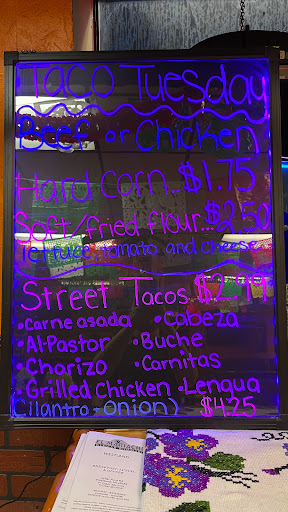 Taco Tuesday
Beef or Chicken
Hard Corn... $1.75
Soft/fried flour... $2.50
lettuce, tomato and cheese
Street Tacos $2.99
•Carne asada •Cabeza
•Al-Pastor •Buche
•Chorizo •Carnitas
•Grilled Chicken •Lengua
Cilantro + Onion) $4.25